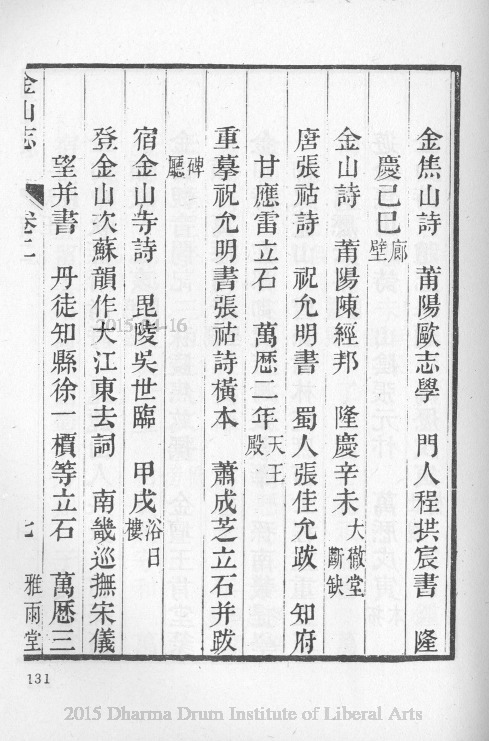 金焦山詩　莆陽歐志學　門人程拱宸書　隆
慶己巳廊壁
金山詩　莆陽陳經邦　隆慶辛未大徹堂斷缺
唐張祜詩　祝允明書　蜀人張佳允跋　知府
甘應雷立石　萬曆二年天王殿
重摹祝允明書張祜詩橫本　蕭成芝立石并跋
碑廳
宿金山寺詩　毘陵吳世臨　甲戌浴日樓
登金山次蘇韻作大江東去詞　南畿巡撫宋儀
望并書　丹徒知縣徐一檟等立石　萬曆三
金山志　卷二　七　雅雨堂
131
2015-04-16
2015 Dharma Drum Institute of Liberal Arts